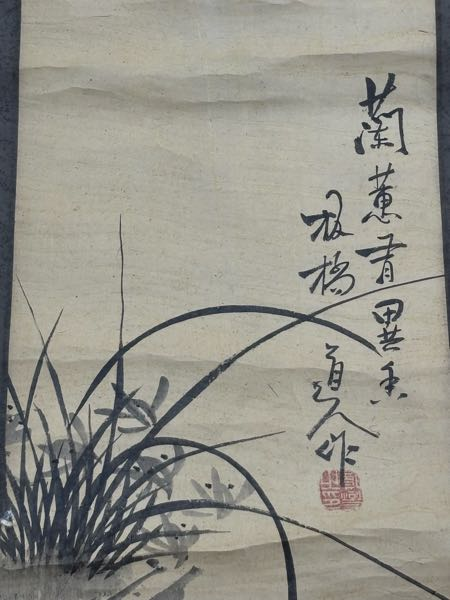 蘭蕙有異香
板橋道人作